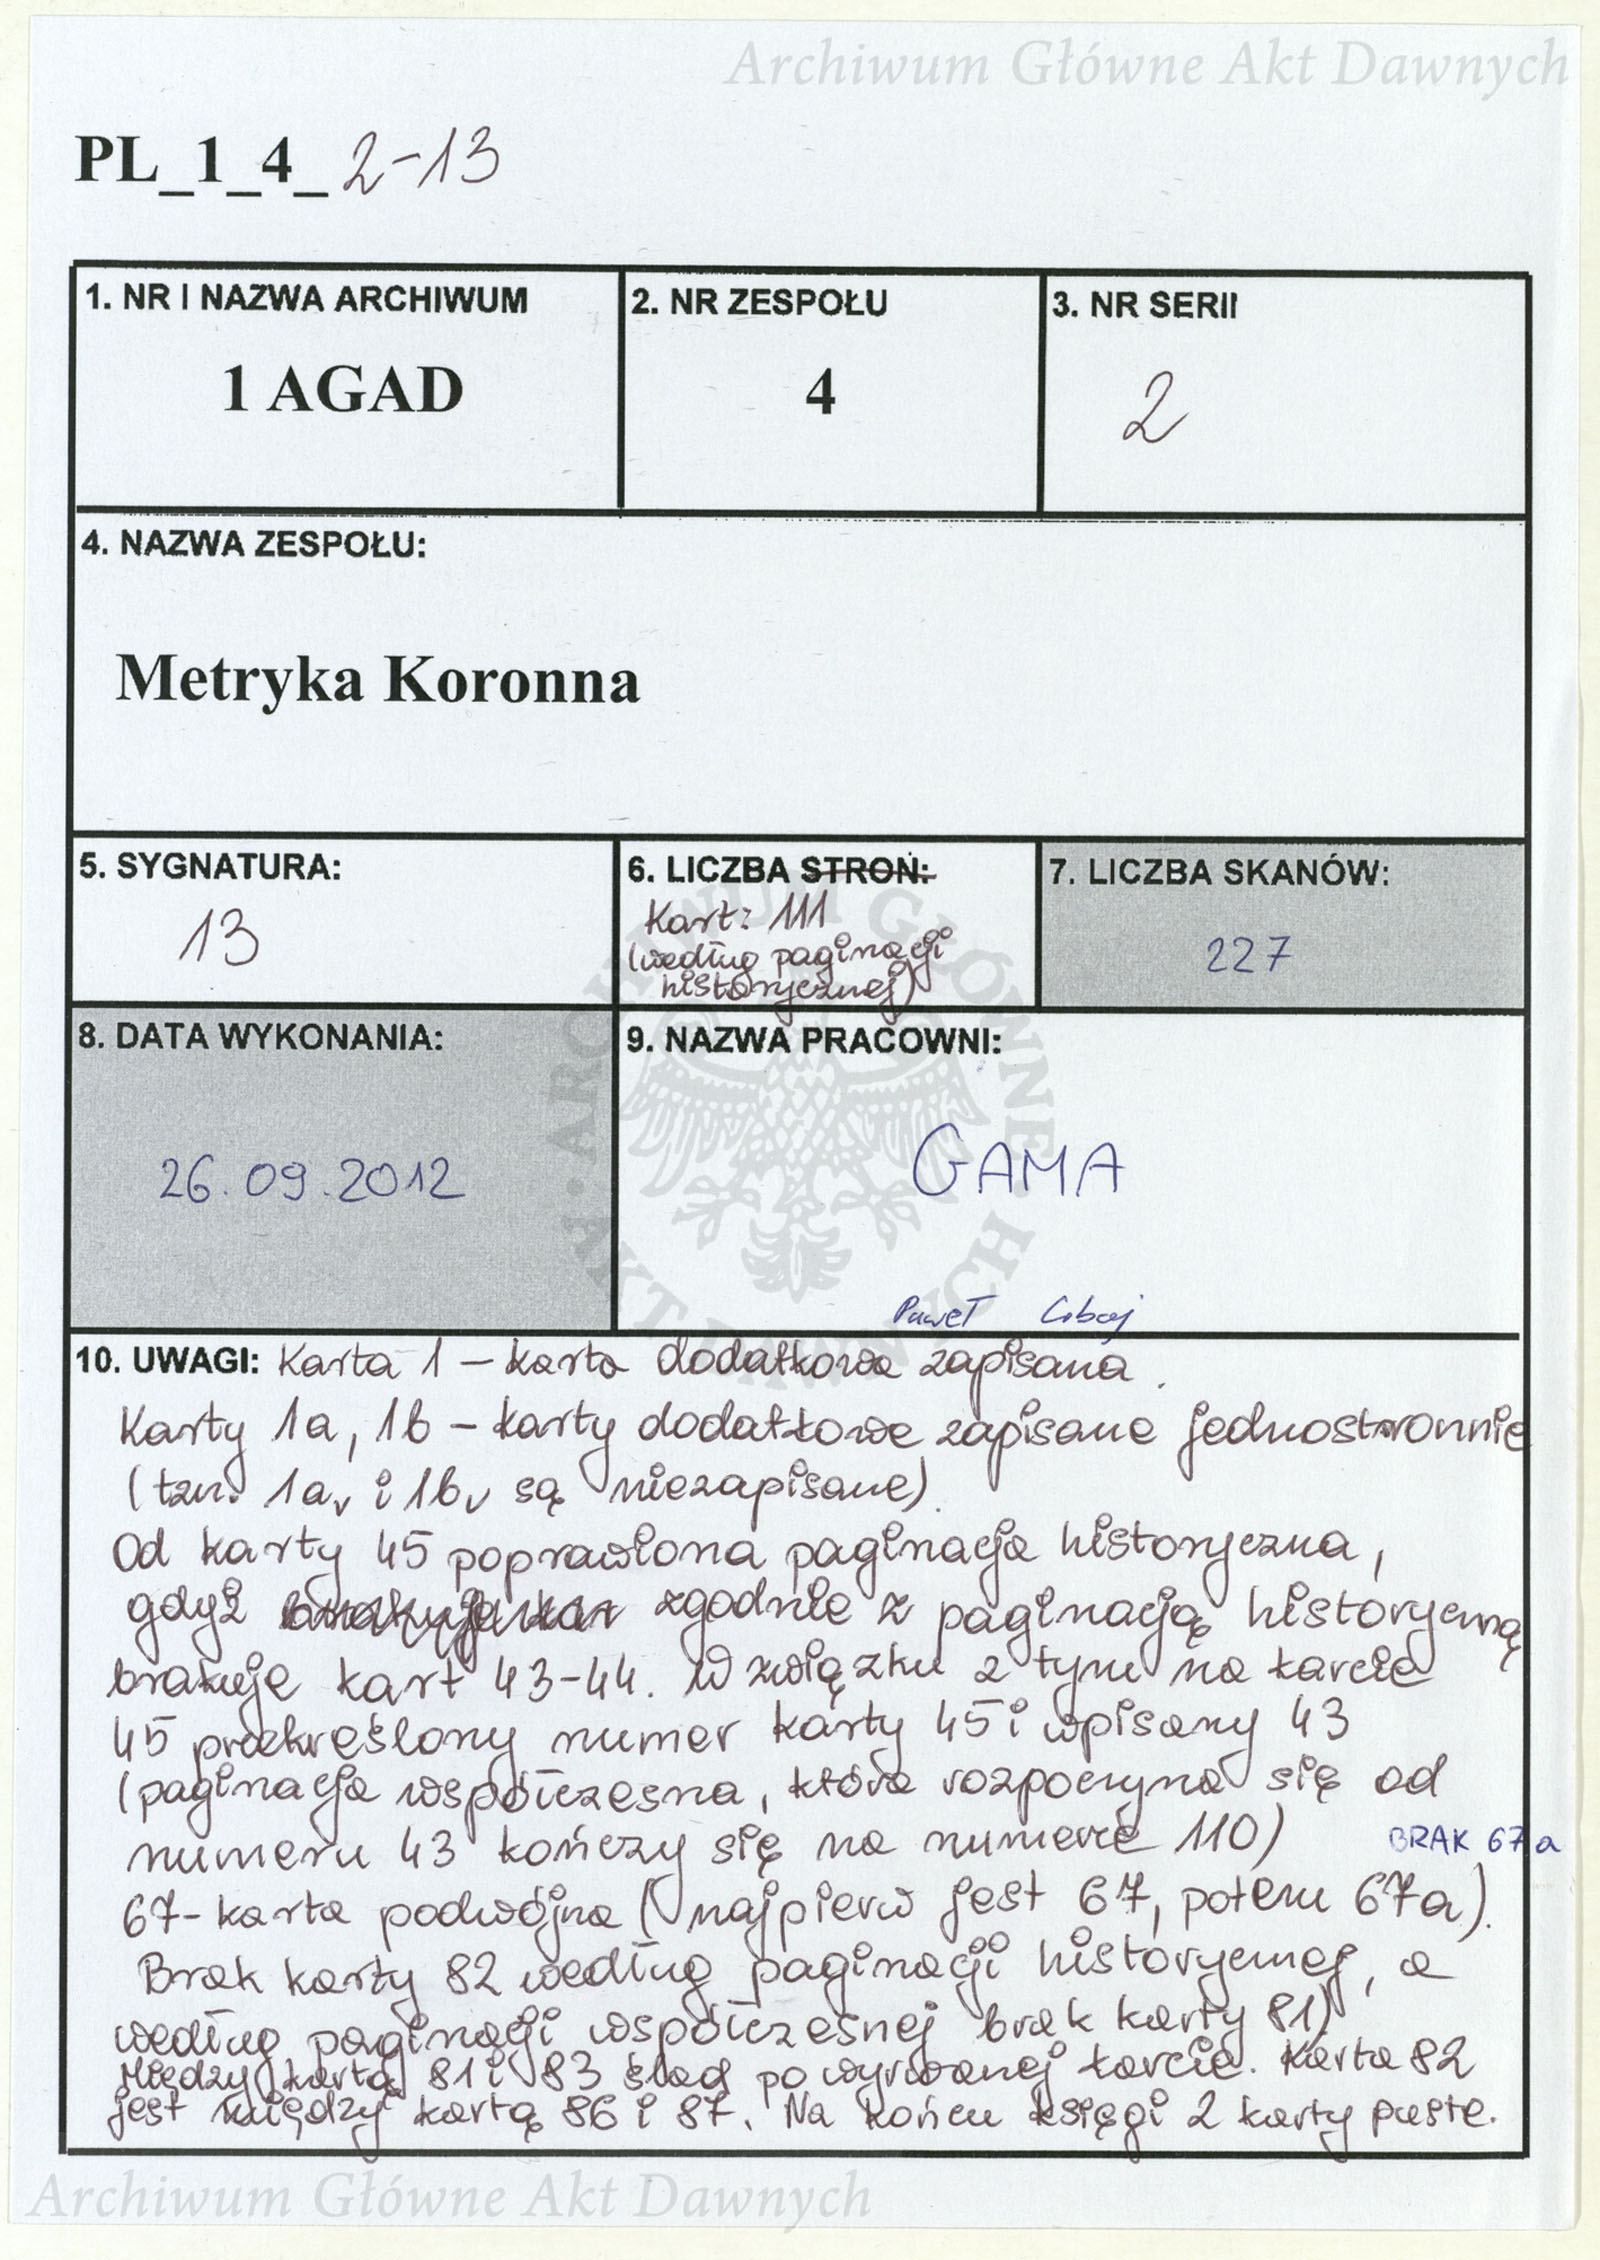 Archiwum Główne Akt Dawnych
PL_1_4_2-13
1. NR I NAZWA ARCHIWUM
1 AGAD
2. NR ZESPOŁU
4
3. NR SERII
2
4. NAZWA ZESPOŁU:
Metryka Koronna
5. SYGNATURA:
13
6. LICZBA STRON:
Kart: 111
(według paginacji
historycznej)
7. LICZBA SKANÓW:
227
8. DATA WYKONANIA:
26.09.2012
9. NAZWA PRACOWNI:
GAMA
Paweł
10. UWAGI: Karta 1 – karta dodatkowa zapisana.
Karty 1a, 1b – karty dodatkowe zapisane jednostronnie
(tzn. 1av i 1bv są niezapisane).
Od karty 45 poprawiona paginacja historyczna,
gdyż zgodnie z paginacją historyczną
brakuje kart 43-44. W związku z tym na karcie
45 przekreślony numer karty 45 i wpisany 43
(paginacja współczesna, która rozpoczyna się od
numeru 43 kończy się na numerze 110)
BRAK 67a
67-karta podwójna (najpierw jest 67, potem 67a).
Brak karty 82 według paginacji historycznej, a
według paginacji współczesnej brak karty 81)
Między kartą 81 i 83 ślad po wyrwanej karcie. Karta 82
jest między kartą 86 i 87. Na końcu księgi 2 karty puste.
ARCHIWUM GŁÓWNE AKT DAWNYCH
Archiwum Główne Akt Dawnych